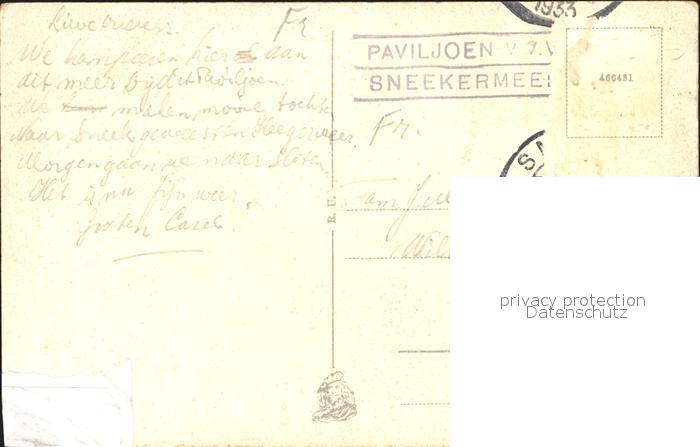 Lieve ouders.
We kampeeren hier aan
dit meer bij dit Paviljoen.
We maken mooie tochten
Naar Sneek geweest en Heegermeer.
Morgen gaan we naar Sloten
Het is nu fijn weer.
Groeten Carel.
Fr
PAVILJOEN V.Z.V
SNEEKERMEE
1933
466481
Fr.
S
R. U.
Fam
privacy protection
Datenschutz